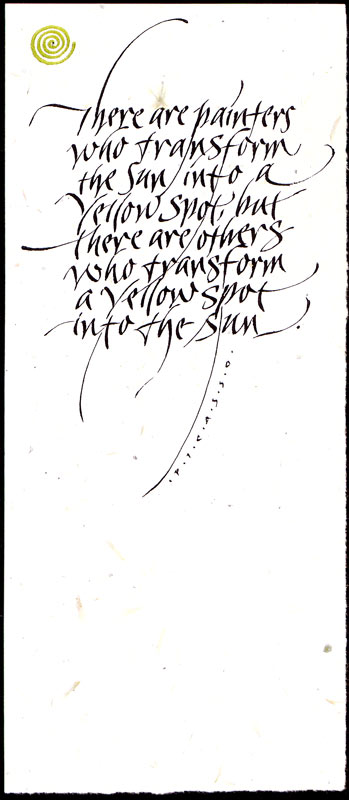 There are painters
who transform
the sun into a
Yellow Spot, but
there are others
who transform
a Yellow Spot
into the sun.
.P.I.C.A.S.S.O.